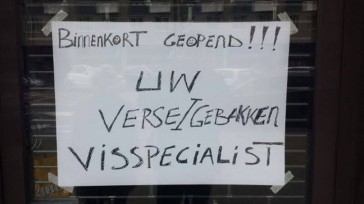 BINNENKORT GEOPEND!!!
UW
VERSE/GEBAKKEN
VISSPECIALIST